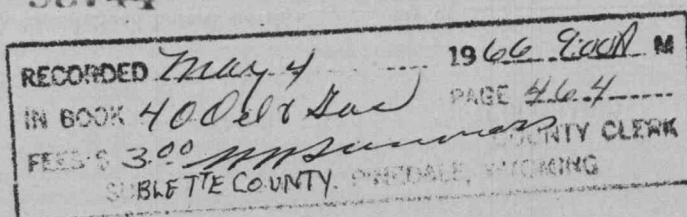 RECORDED May 4 1966 9:00A M
IN BOOK 40 Oil & Gas PAGE 464
FEES $ 3.00 COUNTY CLERK
SUBLETTE COUNTY. PINEDALE, WYOMING